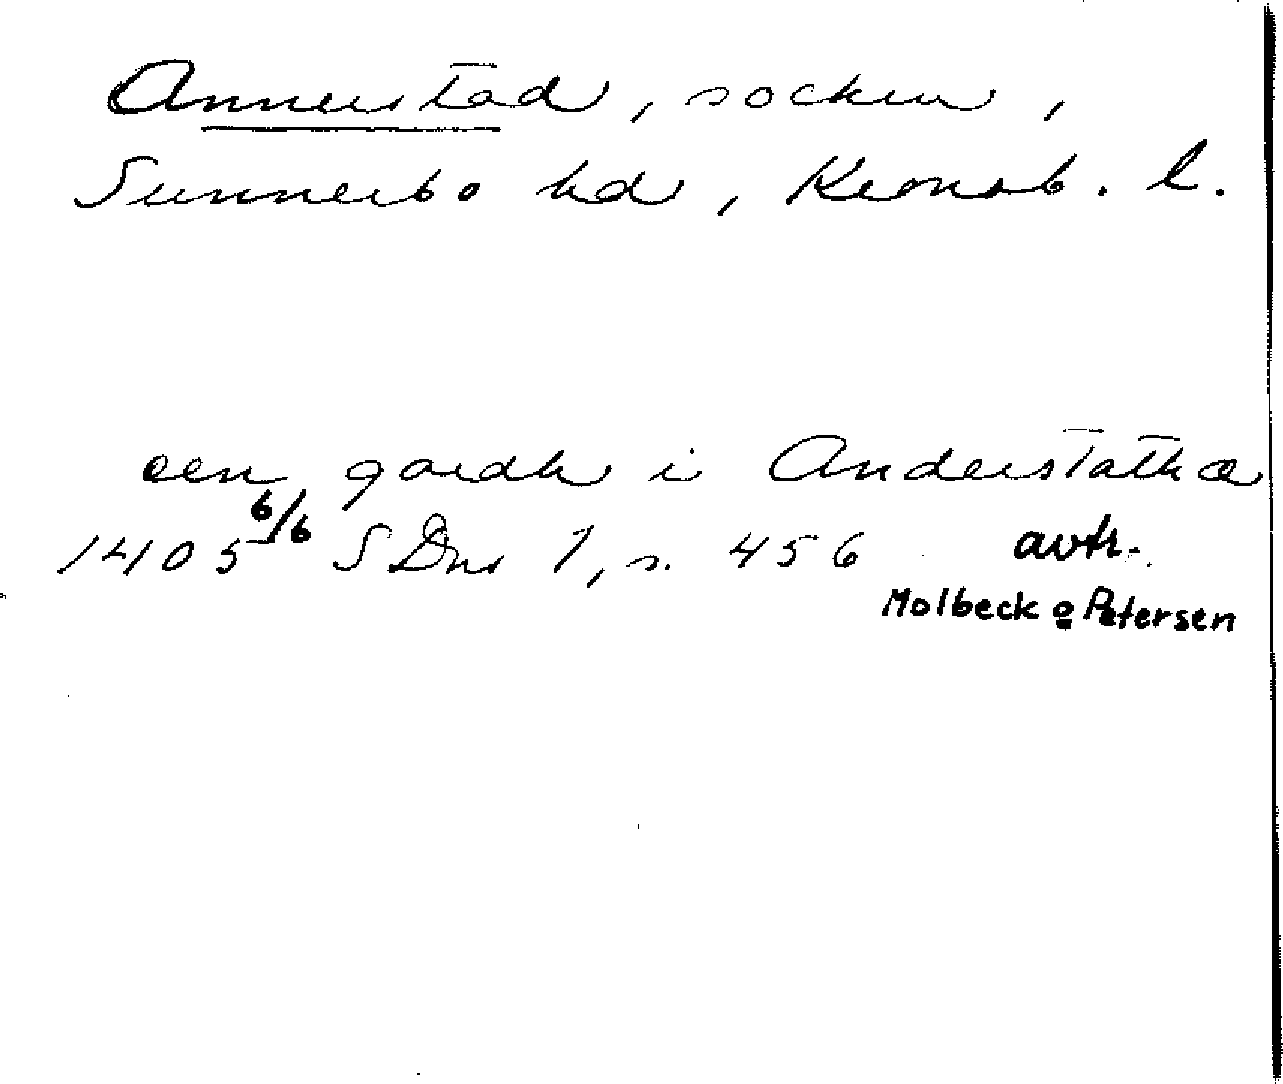 Annerstad, socken,
Sunnerbo hd, Kronob. l.
een gardh i Anderstathæ
1405 6/6 SDns 1, s. 456 avtr.
Molbeck o Petersen